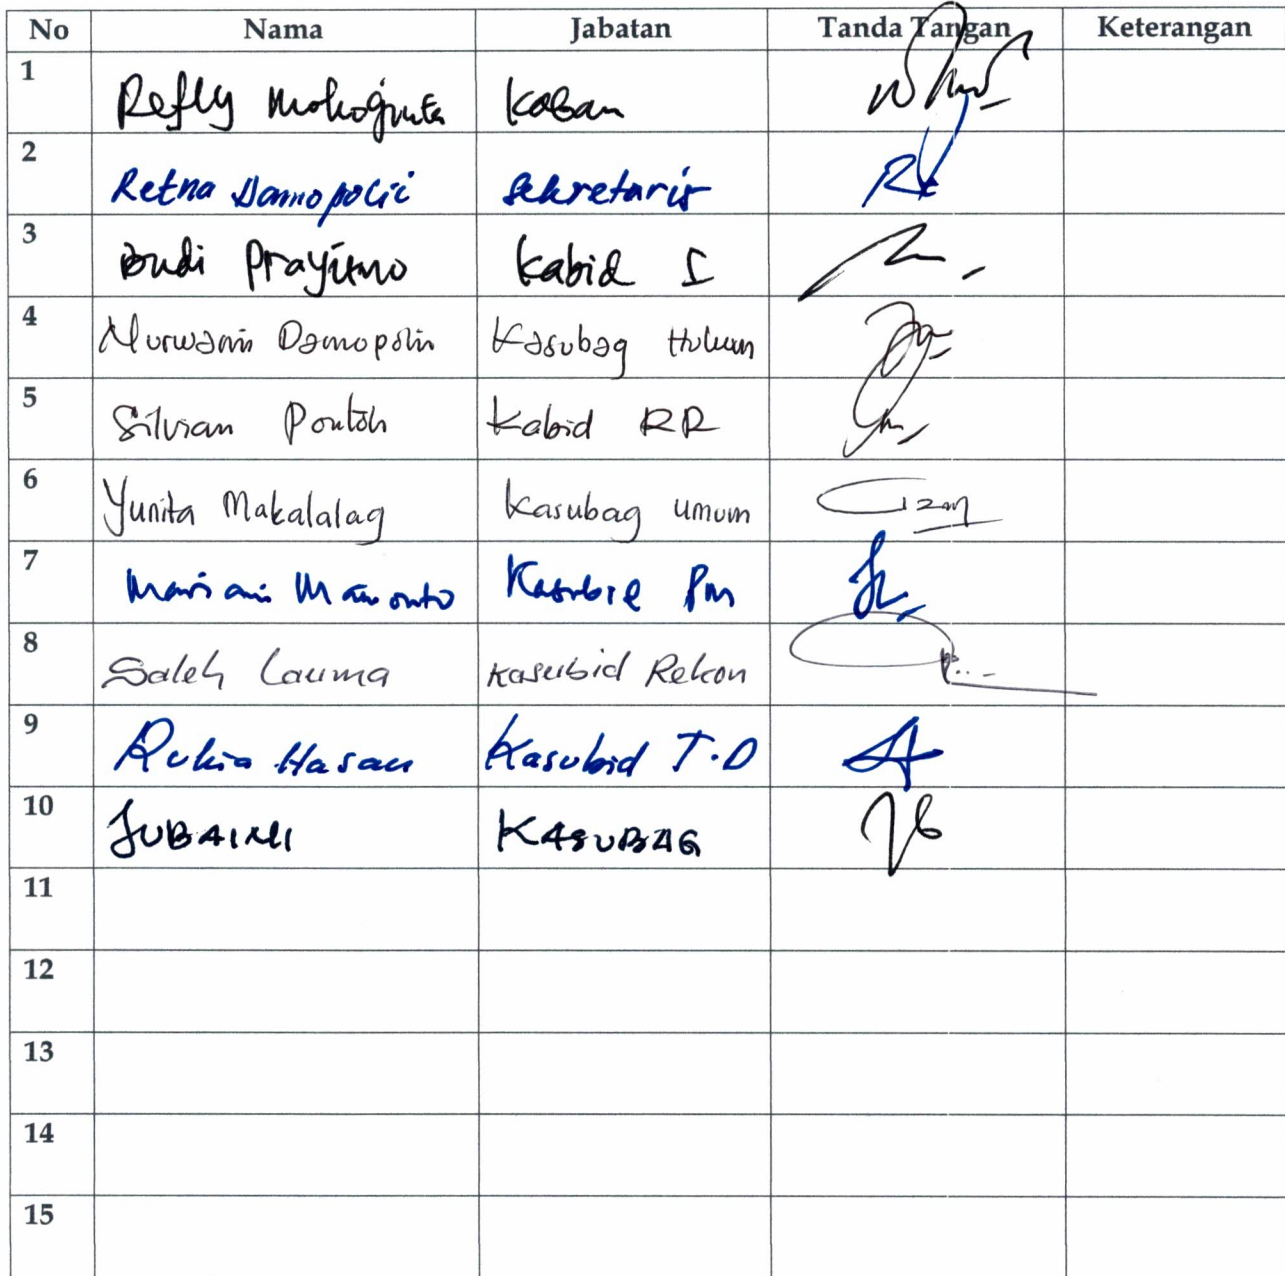 No Nama Jabatan Tanda Tangan Keterangan
1 Refly Mokoginta Kaban
2 Retna Damopolii Sekretaris
3 Budi Prayitno Kabid I
4 Nurwami Damopolii Kasubag Hukum
5 Silvian Pontoh Kabid RR
6 Yunita Makalalag Kasubag umum
7 Mariani Mamonto Kasubid PM
8 Saleh Lauma Kasubid Rekon
9 Rukia Hasan Kasubid T.D
10 JUBAINI KASUBAG
11
12
13
14
15